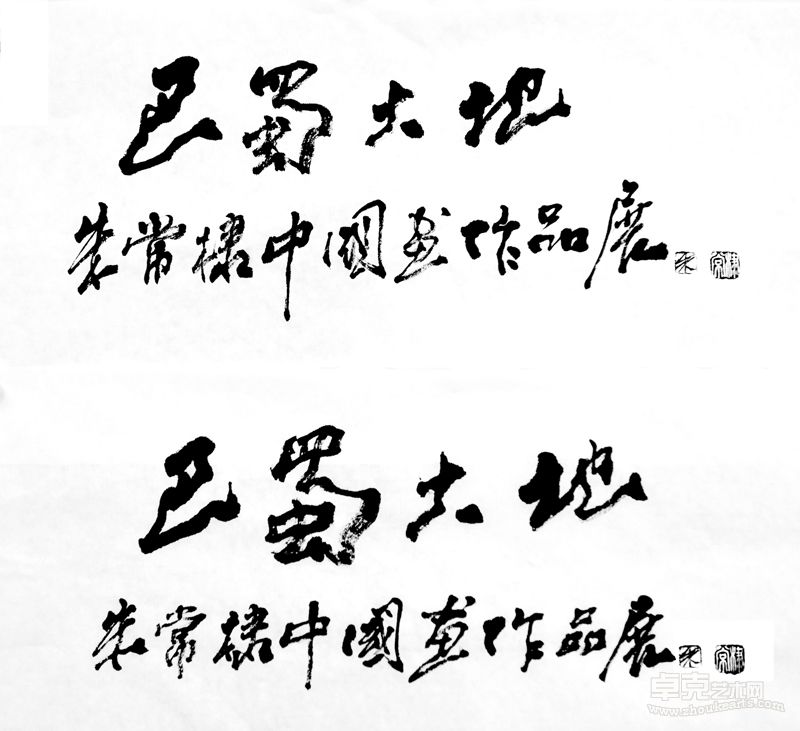 巴蜀大地
朱常棣中國画作品展
巴蜀大地
朱常棣中國画作品展
卓克艺术网
www.zhoukearts.com